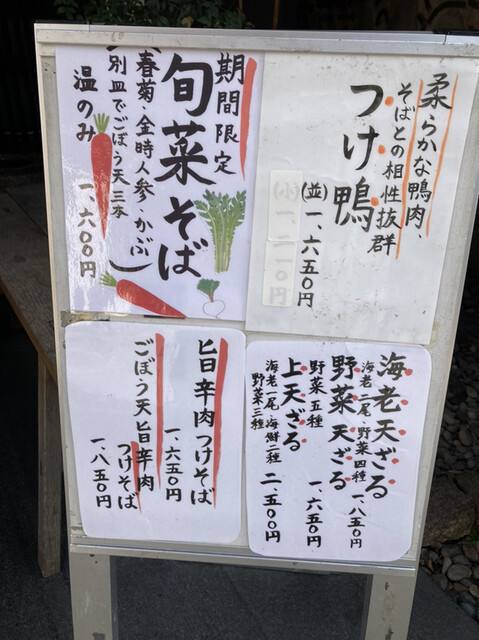 柔らかな鴨肉、
そばとの相性抜群
つけ鴨
(並)一、六五〇円
(小)一、二一〇円
期間限定
旬菜そば
(春菊・金時人参・かぶ)
別皿でごぼう天三本
温のみ
一、六〇〇円
海老天ざる
海老二尾・野菜四種
一、八五〇円
野菜天ざる
野菜五種
一、六五〇円
上天ざる
海老一尾・海鮮二種
野菜三種
二、五〇〇円
旨辛肉つけそば
一、六五〇円
ごぼう天旨辛肉
つけそば
一、八五〇円